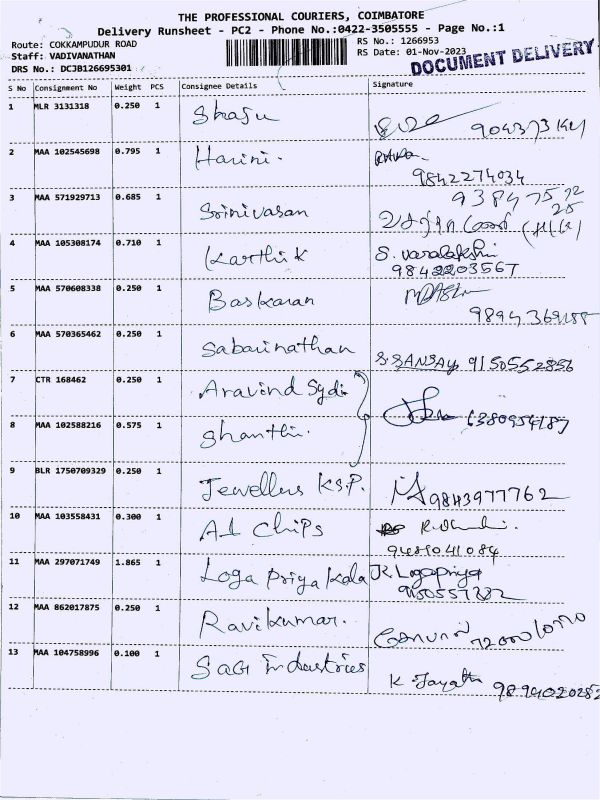 THE PROFESSIONAL COURIERS, COIMBATORE
Delivery Runsheet - PC2 - Phone No.:0422-3505555 - Page No.:1
Route: COKKAMPUDUR ROAD
Staff: VADIVANATHAN
DRS No.: DCJB126695301
RS No.: 1266953
RS Date: 01-Nov-2023
DOCUMENT DELIVERY
S No Consignment No Weight PCS Consignee Details Signature
1 MLR 3131318 0.250 1 Shaju
2 MAA 102545698 0.795 1 Harini.
9842274034
3 MAA 571929713 0.685 1 Srinivasan
4 MAA 105308174 0.710 1 Karthik S. varalakshmi
9842203567
5 MAA 570608338 0.250 1 Baskaran
6 MAA 570365462 0.250 1 Sabarinathan S.SANJAY 9150552856
7 CTR 168462 0.250 1 Aravind Sydi
8 MAA 102588216 0.575 1 Shanthi. 6380954187
9 BLR 1750709329 0.250 1 Jewellers K.S.P. 9843977762
10 MAA 103558431 0.300 1 A1 Chips
9489041084
11 MAA 297071749 1.865 1 Loga Priya Kala K. Logapriya
12 MAA 862017875 0.250 1 Ravikumar.
13 MAA 104758996 0.100 1 SaGi industries K Jayath 9894020282